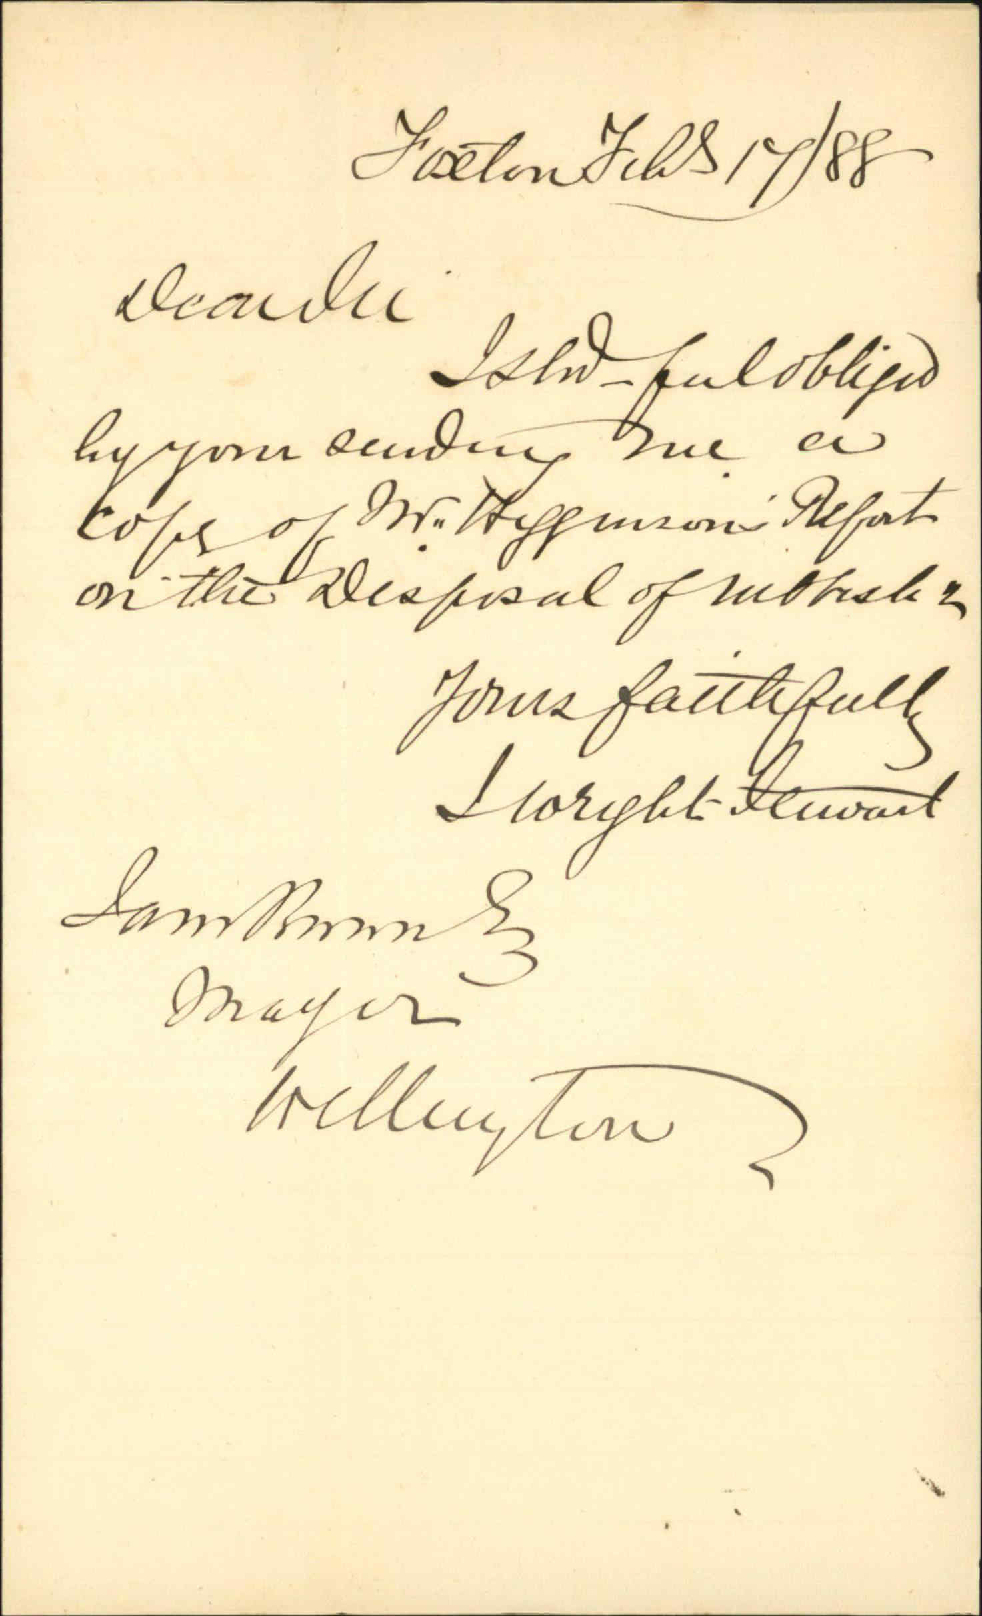 Foxton Feby 17/88
Dear Sir
I shd feel obliged
by your sending me a
copy of Mr. Higginson's Report
on the Disposal of rubbish
Yours faithfully
J Wright Stewart
Sam Brown Esq
Mayor
Wellington